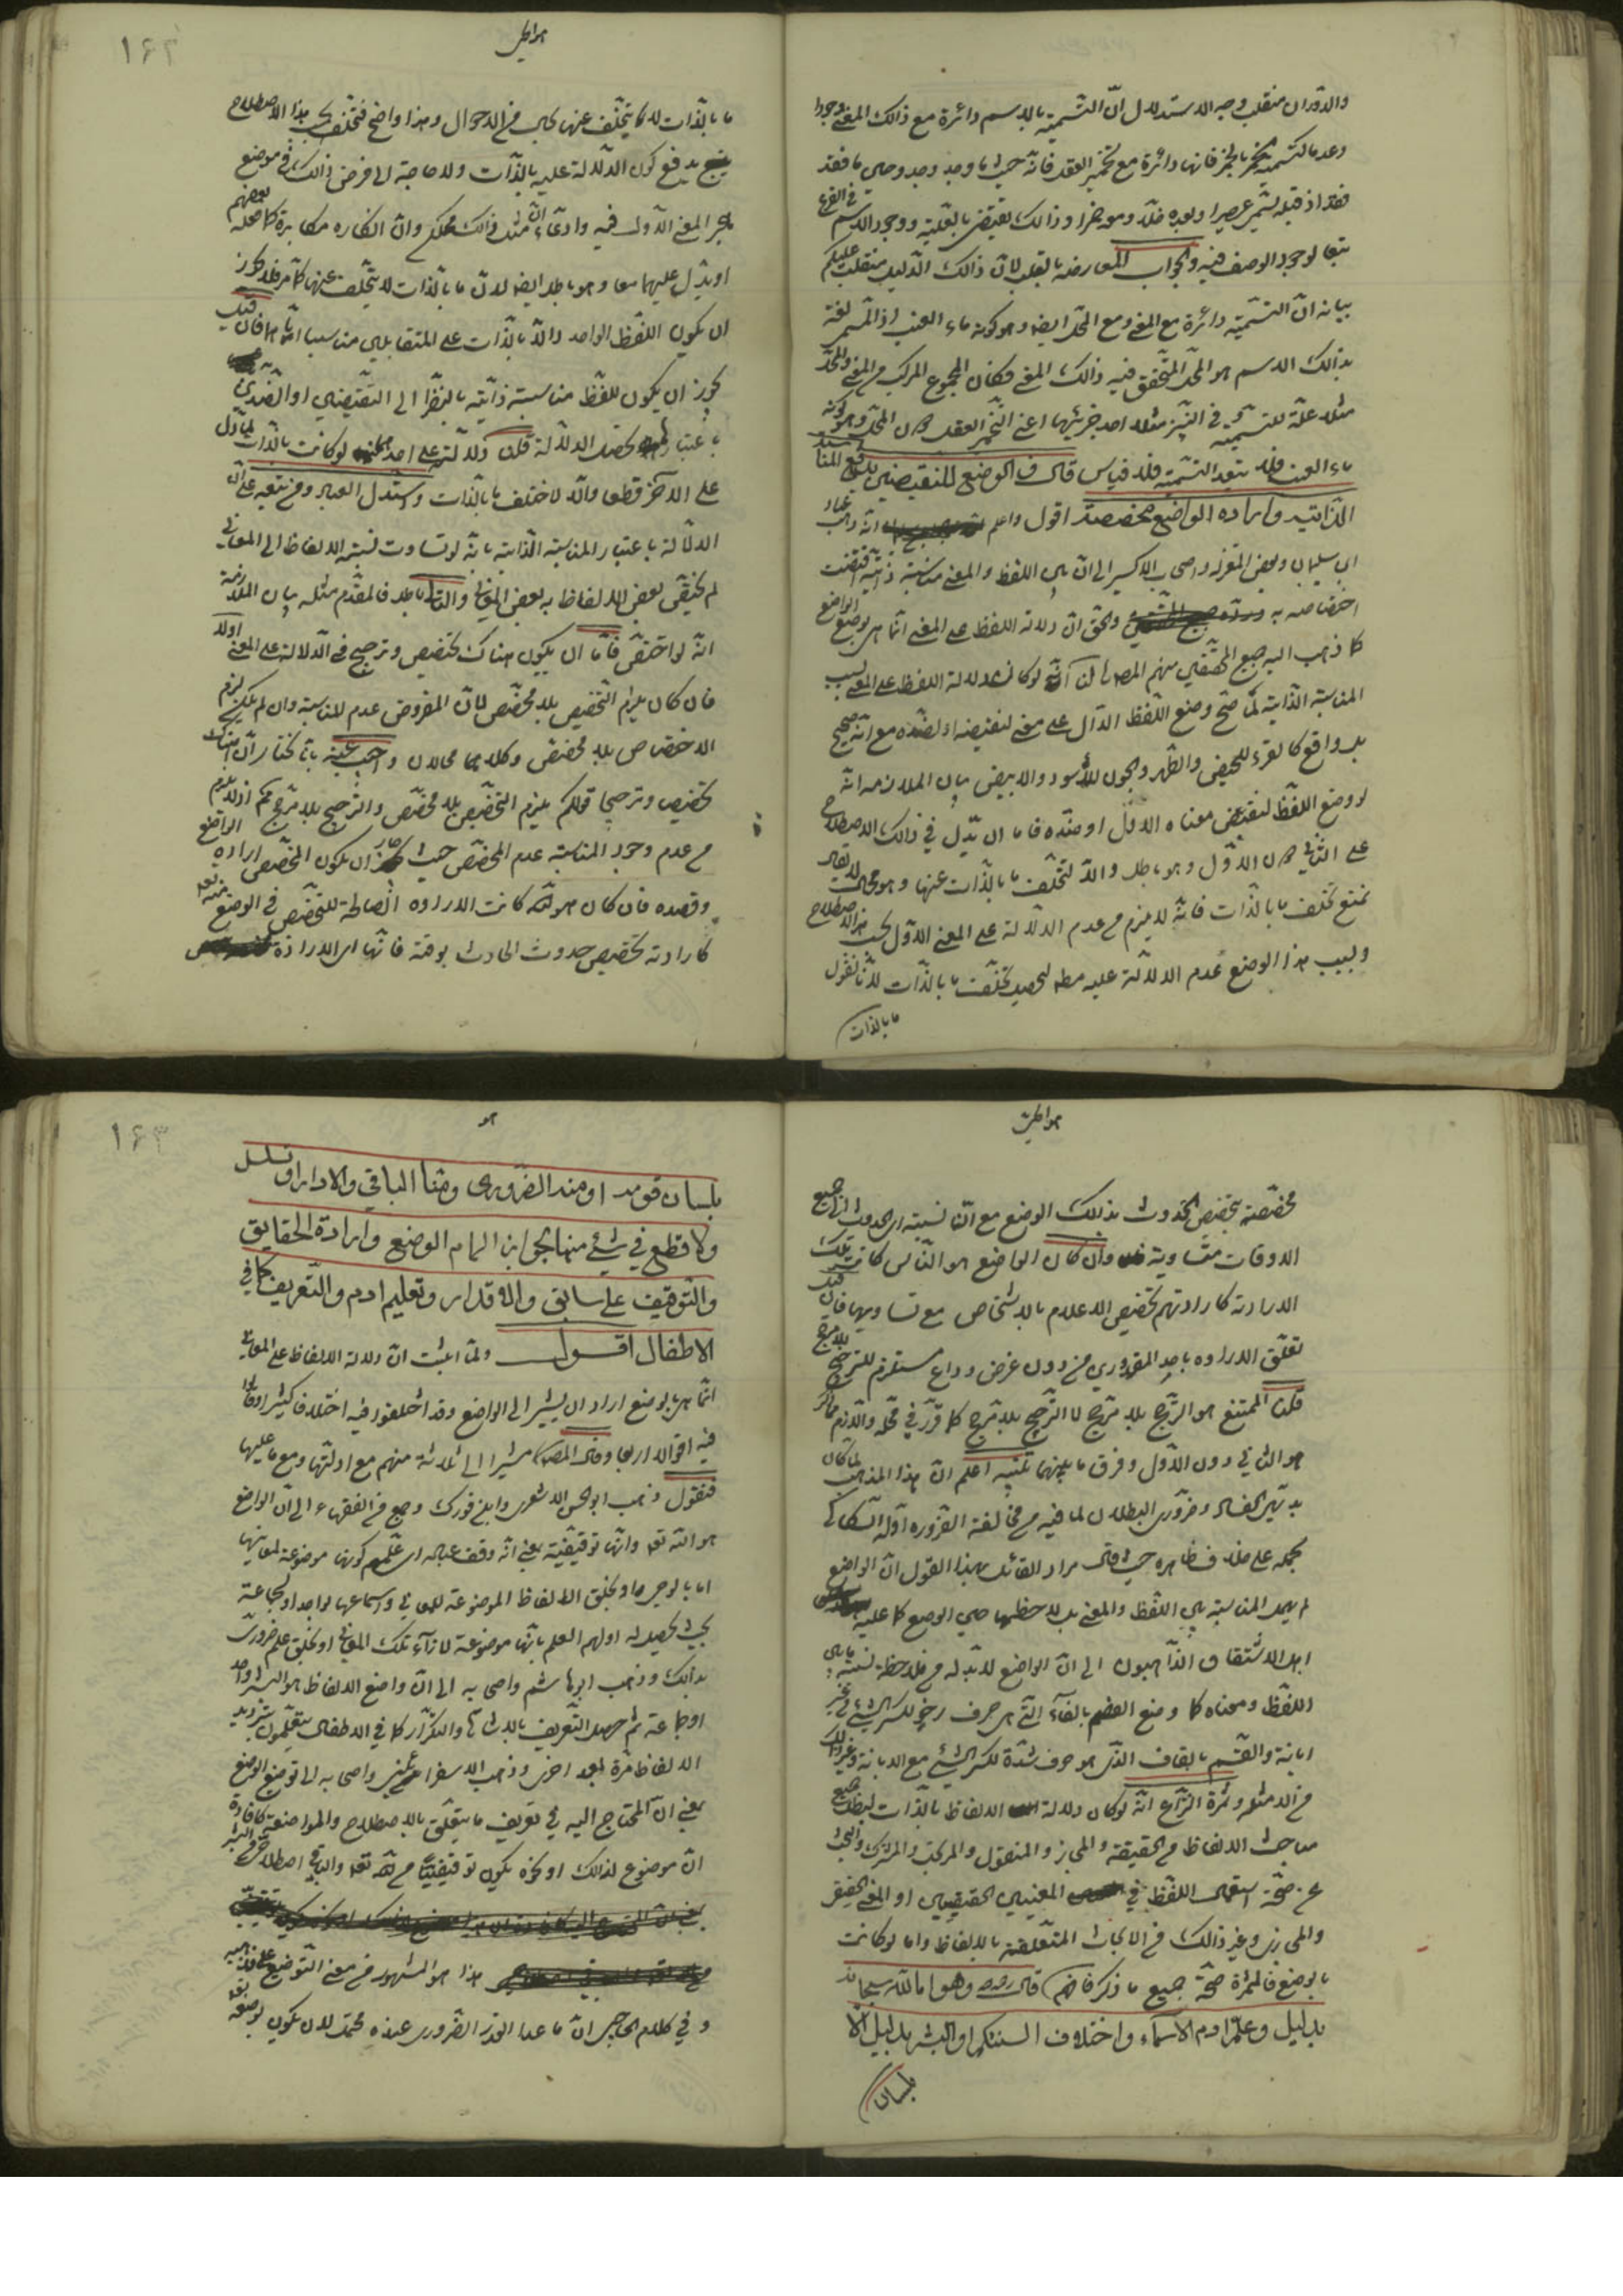 والدوران منقلب وجه الاستدلال انّ التسمية بالاسم دائرة مع ذالك المعنى وجودا
وعدما كتسمية الخمر بالخمر فانها دائرة مع تخمير العقل فانه حيث ما وجد وجد وحيث ما فقد
فقد اذ قبله تسمى عصيرا وبعده خلّا ومعه خمرا وذالك يقتضى بالعلّية ووجود الاسم في الفرع
تبعا لوجود الوصف فيه والجواب المعارضة بالقلب لانّ ذالك الدليل منقلب عليكم
بيانه انّ التسمية دائرة مع المعنى ومع المحلّ ايضا وهو كونه ماء العنب اذ المسمى لغة
بذالك الاسم هو المحلّ المتحقق فيه ذالك المعنى فكان المجموع المركب من المعنى والمحلّ
مثلا علّة للتسمية و في النبيذ مثلا احد جزئيها اعنى التخمير العقل دون المحلّ وهو كونه
ماء العنب فلا يتعدّ التسمية فلا قياس قال ف الوضع للنقيضين يدفع المناسبة
الذاتية وارادة الواضع مخصصة اقول واعلم انّه ذهب عباد
ابن سليمان وبعض المعتزلة واصحاب الاكسير الى انّ بين اللفظ والمعنى مناسبة ذاتية اقتضت
اختصاصه به والحق انّ دلالة اللفظ على المعنى انّما هى بوضع الواضع
كما ذهب اليه جميع المحققين منهم المصـ لنا انّه لو كان دلالة اللفظ على المعنى بسبب
المناسبة الذاتية لما صحّ وضع اللفظ الدّال على معنى لنقيضه او لضدّه مع انّه صحيح
بل واقع كالقرء للحيض والطهر والجون للأسود والابيض بيان الملازمه انّه
لو وضع اللفظ لنقيض معناه الاوّل او ضدّه فاما ان يدّل في ذالك الاصطلاح
على الثانى دون الاوّل وهو باطل والّا لتخلّف ما بالذّات عنها وهو محال لا يقال
نمنع تخلف ما بالذّات فانّه لا يلزم من عدم الدلالة على المعنى الاوّل بحسب هذا الاصطلاح
وبسبب هذا الوضع عدم الدلالة عليه مطـ ليحصل تخلّف ما بالذّات لانّا نقول
ما بالذات
هواطل
١٦٢
ما بالذّات لا يتخلّف عنها بحال من الاحوال وهذا واضح فتخلف بحسب هذا الاصطلاح
يدفع كون الدلالة عليه بالذّات ولا حاجة الى فرض ذالك في موضع
هجر المعنى الاول فيه وادّعاء انّ مثل ذالك تحكّم وانّ انكاره مكابرة كما فعله بعضهم
او يدّل عليهما معا وهو باطل ايضا لانّ ما بالذّات لا يتخلّف عنها كما مرّ فلا يجوز
ان يكون اللفظ الواحد دالّا بالذّات على المتقابلين مناسبا ايّاهما فان قيل
يجوز ان يكون للفظ مناسبة ذاتية بالنظر الى النقيضين او الضدّين
باعتبارهما تحصل الدلالة قلنا دلالته على احدهما لو كانت بالذّات لما دلّ
على الآخر قطعا والّا لاختلف ما بالذّات واستدل العباد ومن تبعه على انّ
الدلالة باعتبار المناسبة الذاتية بانّه لو تساوت نسبة الالفاظ الى المعانى
لم تختصّ بعض الالفاظ ببعض المعانى والتالى باطل فالمقدّم مثله بيان الملازمة
انّه لو اختصّ فامّا ان يكون هناك تخصيص وترجيح في الدلالة على المعنى اولا
فان كان يلزم التخصيص بلا مخصّص لانّ المفروض عدم المناسبة وان لم يكن يلزم
الاختصاص بلا مخصّص وكلاهما محالان واجيب عنه بانّا نختار انّ هناك
تخصيص وترجيحا قولكم يلزم التخصيص بلا مخصّص والترجيح بلا مرجّح ممّ اذ لا يلزم
من عدم وجود المناسبة عدم المخصّص حيث جاز ان يكون المخصّص ارادة الواضع
وقصده فان كان هو الله كانت الارادة الصالحة للتخصّص في الوضع منه تعـ
كارادته تخصيص حدوث الحادث بوقته فانّها اى الارادة
هواطل
مخصّصة بتخصيص الحدوث بذالك الوضع مع انّ نسبته اى الحدوث الى جميع
الاوقات متساوية وان كان الواضع هو النّاس كانت تلك
الارادة كارادتهم تخصيص الاعلام بالاشخاص مع تساويها فان قيل
تعلّق الارادة باحد المقدورين من دون غرض وداع مستلزم للترجيح بلا مرجّح
قلنا الممتنع هو الترجّح بلا مرجّح لا الترجيح بلا مرجّح كما قرّر في محلّه واللّازم
هو الثانى دون الاوّل وفرق ما بينهما تنبيه اعلم انّ هذا المذهب لما كان
بديهى الفساد وضرورى البطلان لما فيه من مخالفة الضرورة اوّله السّكاكى
بحمله على خلاف ظاهره حيث قال مراد القائل بهذا القول انّ الواضع
لم يهمل المناسبة بين اللفظ والمعنى بل لاحظها حين الوضع كما عليه
اهل الاشتقاق الذّاهبون الى انّ الواضع لا بدّ له من ملاحظة نسبة ما بين
اللفظ ومعناه كما وضع الفصم بالفآء الّتى هى حرف رخو لكسر الشئ من غير
ابانة والقصم بالقاف الذى هو حرف شدّة لكسر الشئ مع الابانة وغير ذالك
من الامثلة وثمرة النزاع انّه لو كان دلالة الالفاظ بالذّات لبطل جميع
مباحث الالفاظ من الحقيقة والمجاز والمنقول والمركب والمشترك والبحث
عن صحّة استعمال اللفظ في المعنيين الحقيقيين او المعنى الحقيقى
والمجازى وغير ذالك من الابحاث المتعلقة بالالفاظ واما لو كانت
بالوضع فالثمرة صحّة جميع ما ذكر فافهم قال وهو اما الله سبحانه
بدليل وعلّم ادم الاسماء واختلاف السنتكم او البشر بدليل الّا
بلسان
هو
١٦٣
بلسان قومه او منه الضرورى ومنّا الباقى والا دار او تسلسل
ولا قطع في شئ منها لجواز الهام الوضع وارادة الحقايق
والتوقيف على سابق والاقدار وتعليم ادم والتعريف كما في
الاطفال اقول ولمّا اثبت انّ دلالة الالفاظ على المعانى
انّما هى بالوضع اراد ان يشير الى الواضع وقد اختلفوا فيه اختلافا كثيرا
فيه اقوالا اربعا وقال المصـ مشيرا الى ثلاثة منهم مع ادلّتها ومع ما عليها
فنقول ذهب ابو الحسن الاشعرى وابن فورك وجمع من الفقهاء الى انّ الواضع
هو الله تعـ وانّها توقيفيّة بمعنى انّه وقف عباده اى علّمهم كونها موضوعة لمعانيها
اما بالوحى او بخلق الالفاظ الموضوعة للمعانى واسماعها لواحد او لجماعة
بحيث يحصل له او لهم العلم بانّها موضوعة لازآء تلك المعانى او بخلق علم ضرورىّ
بذالك وذهب ابو هاشم واصحابه الى انّ واضع الالفاظ هو البشر واحد
او جماعة ثمّ حصل التعريف بالاشارة والتكرار كما في الاطفال يتعلّمون بترديد
الالفاظ مرّة بعد اخرى وذهب الاسفرائينى واصحابه الى توضيع الوضع
بمعنى انّ المحتاج اليه في تعريف ما يتعلّق بالاصطلاح والمواضعة كافادة
انّ موضوع لذالك او نحوه يكون توقيفيّا من الله تعـ والباقى اصطلاحىّ من البشر
هذا هو المشهور من معنى التوضيع على مذهبه
و في كلام الحاجبى انّ ما عدا القدر الضرورى عنده محتمل لان يكون بوضعه تعـ